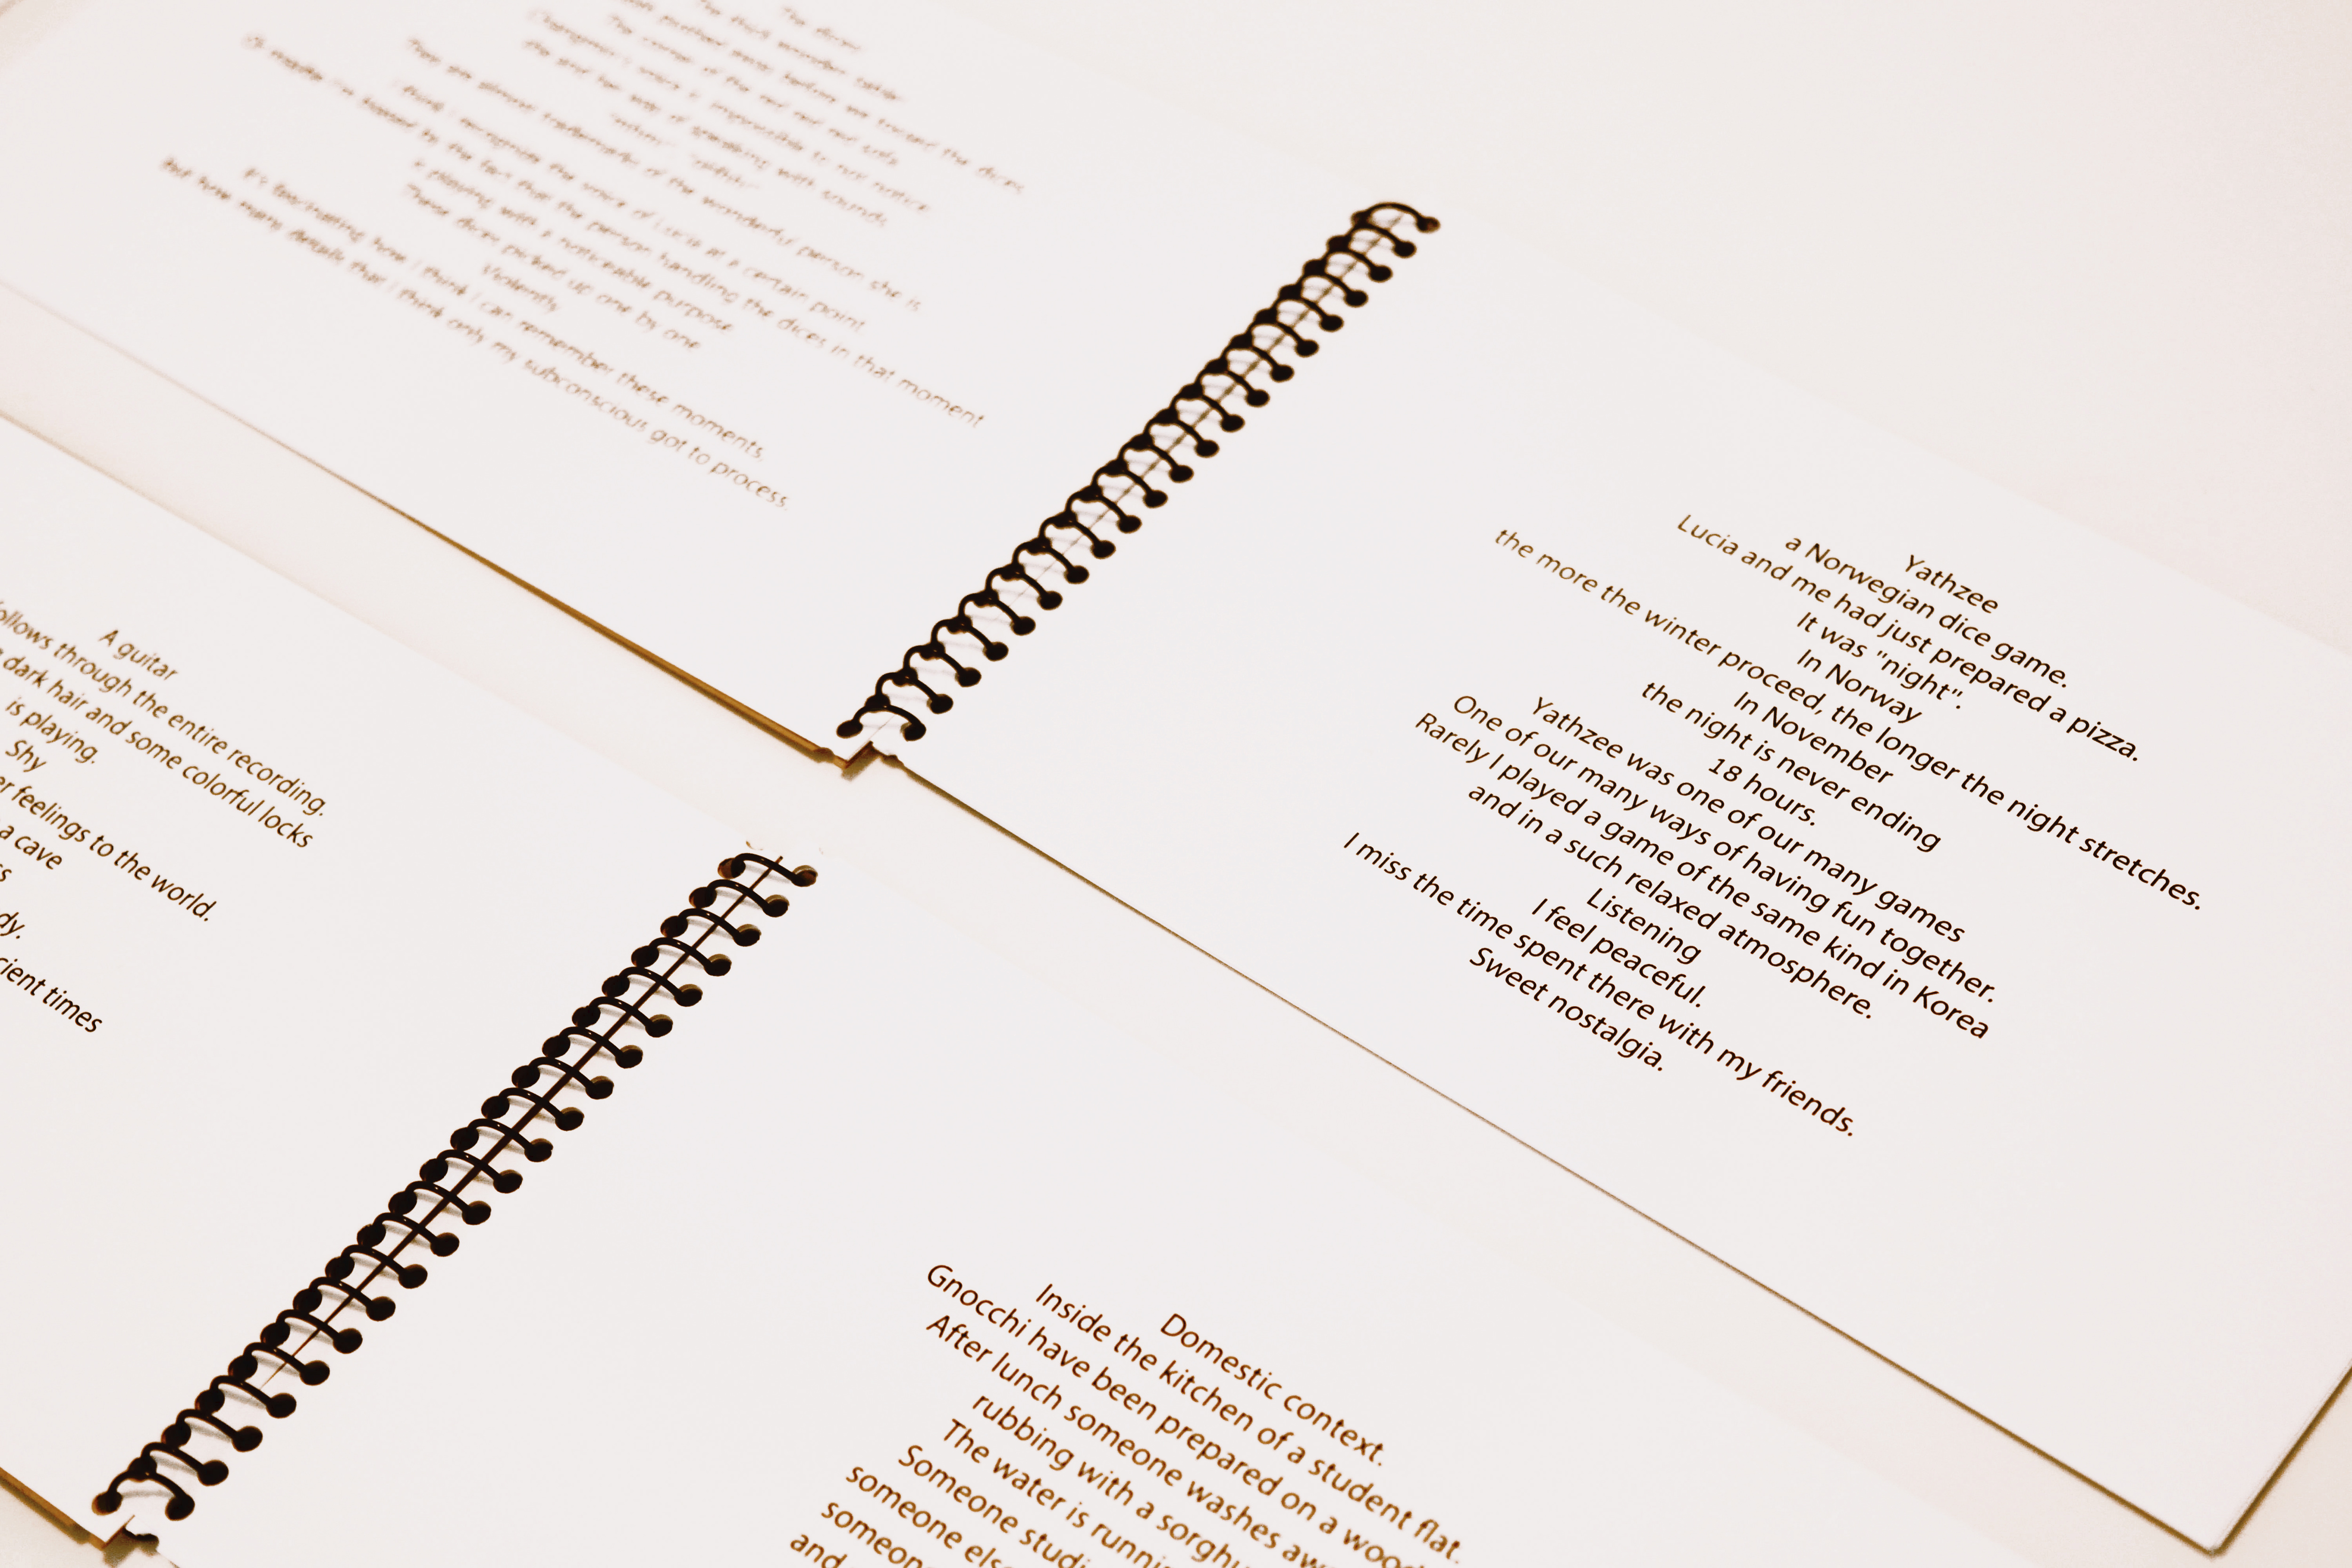 The thick wooden table
pushed away before we tossed the dices
The corner of the red and red sofa
voice is impossible to not notice
She and her way of speaking with sounds
They are almost trademarks of the wonderful person she is.
I think I recognize the voice of Lucia at a certain point
Or maybe I'm biased by the fact that the person handling the dices in that moment
is playing with a noticeable purpose
These dices picked up one by one
Violently
It's fascinating how I think I can remember these moments,
but how many details that I think only my subconscious got to process.
Yathzee
a Norwegian dice game.
Lucia and me had just prepared a pizza.
It was "night".
In Norway
the more the winter proceed, the longer the night stretches.
In November
the night is never ending
18 hours.
Yathzee was one of our many games
One of our many ways of having fun together.
Rarely I played a game of the same kind in Korea
and in a such relaxed atmosphere.
Listening
I feel peaceful.
I miss the time spent there with my friends.
Sweet nostalgia.
A guitar
ollows through the entire recording.
dark hair and some colorful locks
is playing.
Shy
er feelings to the world.
a cave
dy.
cient times
Domestic context.
Inside the kitchen of a student flat.
Gnocchi have been prepared on a wood
After lunch someone washes aw
rubbing with a sorghu
The water is runni
Someone studi
someone else
someon
and